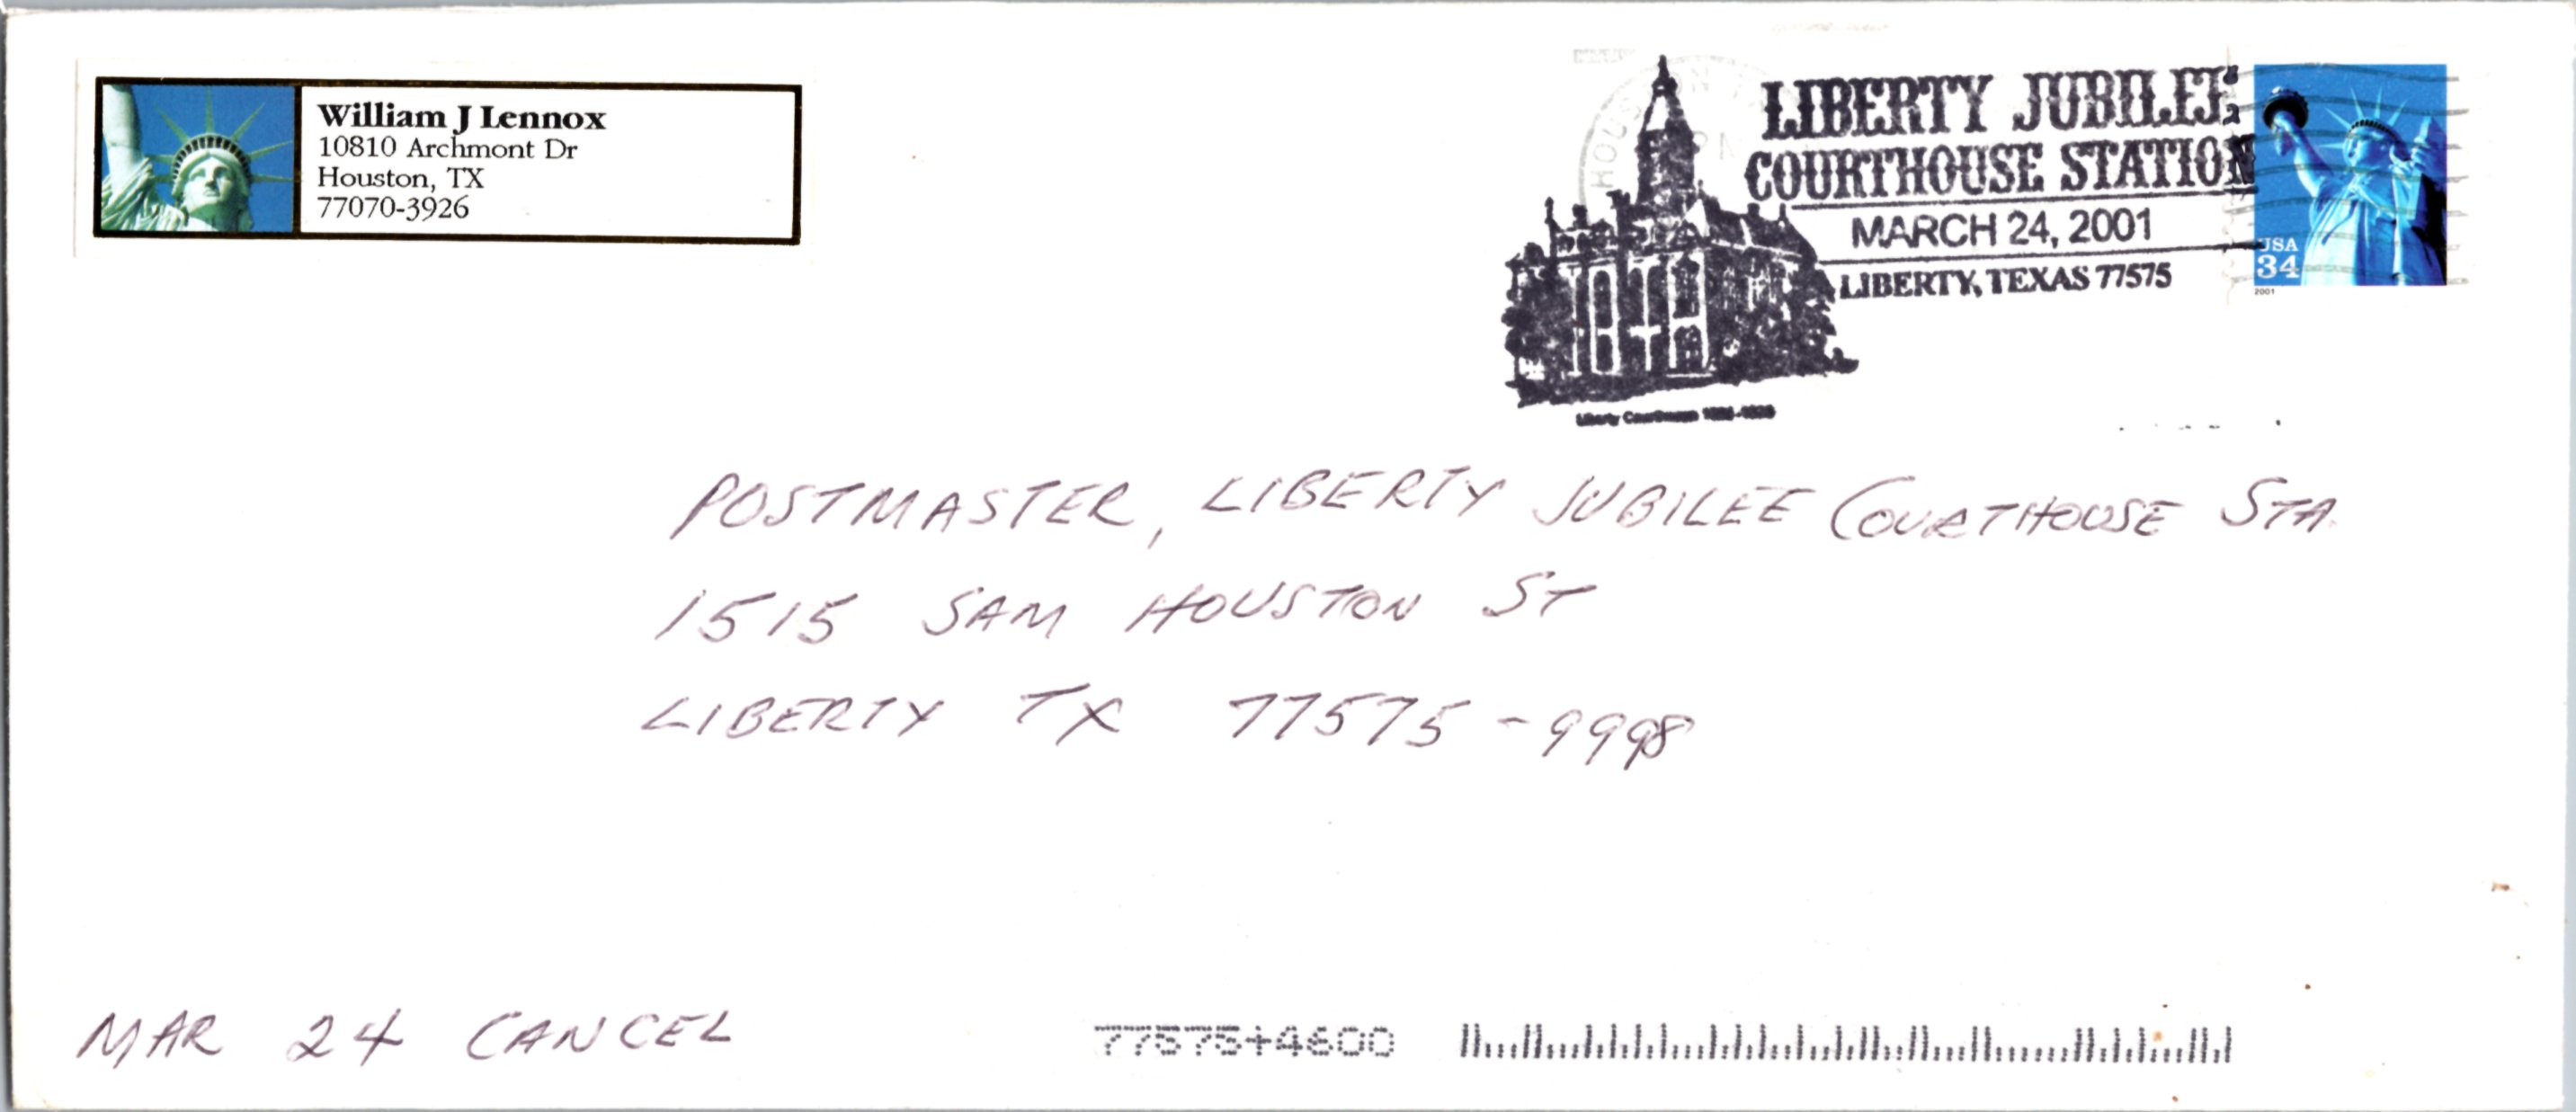 William J Lennox
10810 Archmont Dr
Houston, TX
77070-3926
HOUSTON
LIBERTY JUBILEE
COURTHOUSE STATION
MARCH 24, 2001
LIBERTY, TEXAS 77575
Liberty Courthouse
USA
34
2001
POSTMASTER, LIBERTY JUBILEE COURTHOUSE STA
1515 SAM HOUSTON ST
LIBERTY TX 77575-9998
MAR 24 CANCEL
77575+4600